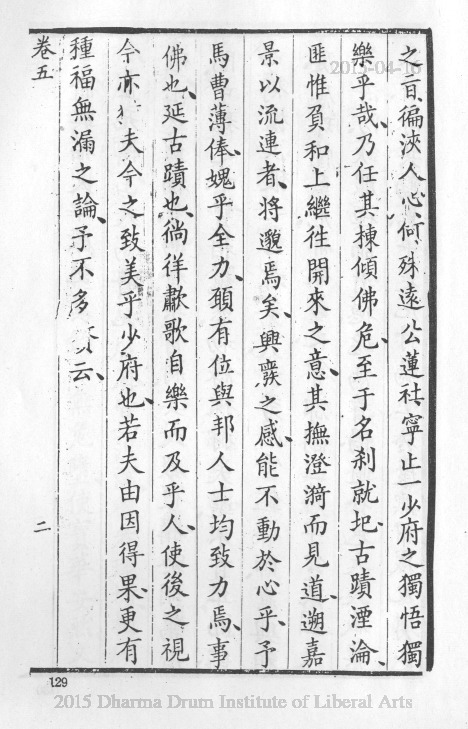 之亩徧浹人心何殊遠公蓮社寧止一少府之獨悟獨
樂乎哉乃任其棟傾佛危至于名刹就圮古蹟湮淪
匪惟負和上繼徃開來之意其撫澄漪而見道遡嘉
景以流連者將邈焉矣興廢之感能不動於心乎予
馬曹薄俸媿乎全力頭有位與邦人士均致力焉事
佛也延古蹟也徜徉歗歌自樂而及乎人使後之視
今亦 夫今之致美乎少府也若夫由因得果更有
種福無漏之論予不多 云
卷五
二
129
2015-04-16
2015 Dharma Drum Institute of Liberal Arts